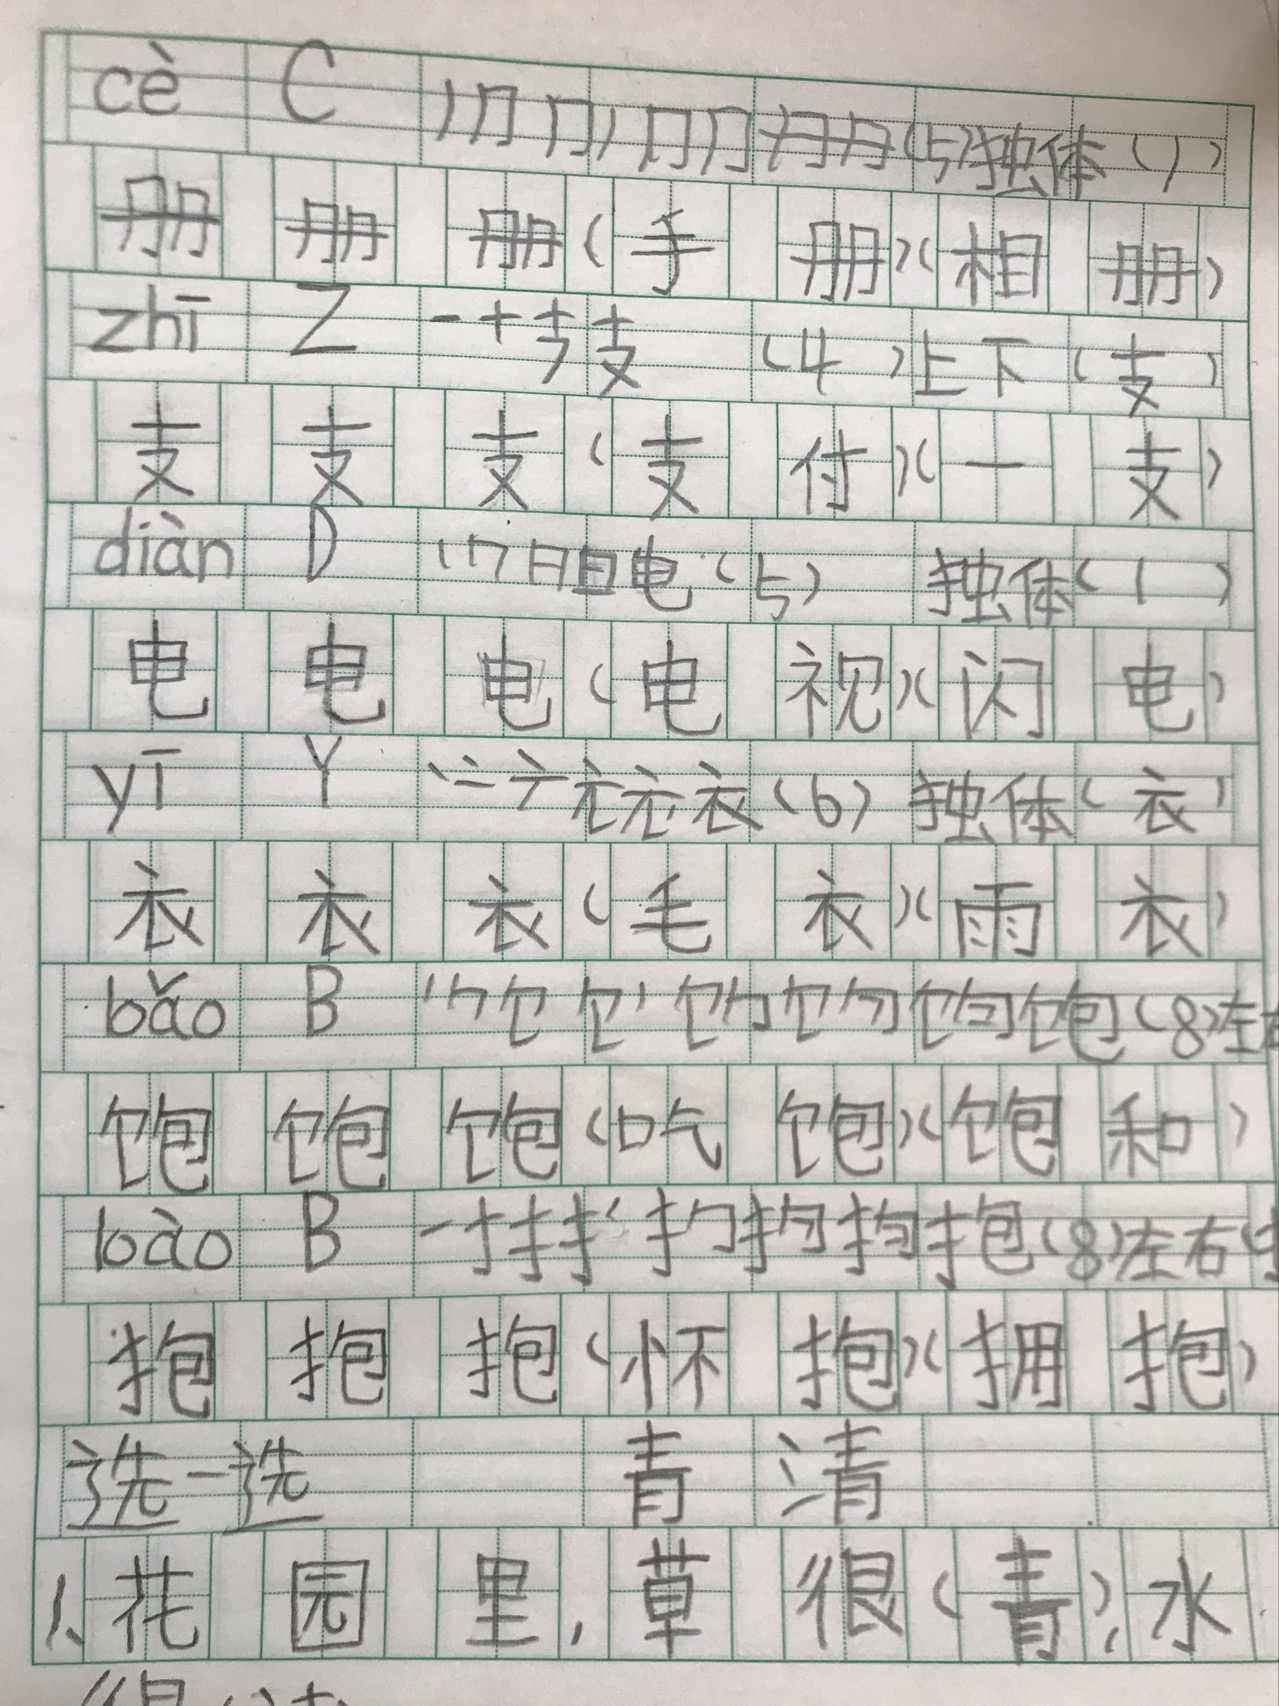 cè C (5)独体(丿)
册 册 册(手册)(相册)
zhī Z 一十支(4)上下(支)
支 支 支(支付)(一支)
diàn D 丨冂日日电(5)独体(丨)
电 电 电(电视)(闪电)
yī Y 丶亠衣(6)独体(衣)
衣 衣 衣(毛衣)(雨衣)
bǎo B 饱(8)左右
饱 饱 饱(吃饱)(饱和)
bào B 一扌抱(8)左右(扌
抱 抱 抱(怀抱)(拥抱)
选一选 青 清
1、花园里,草很(青),水
很(清